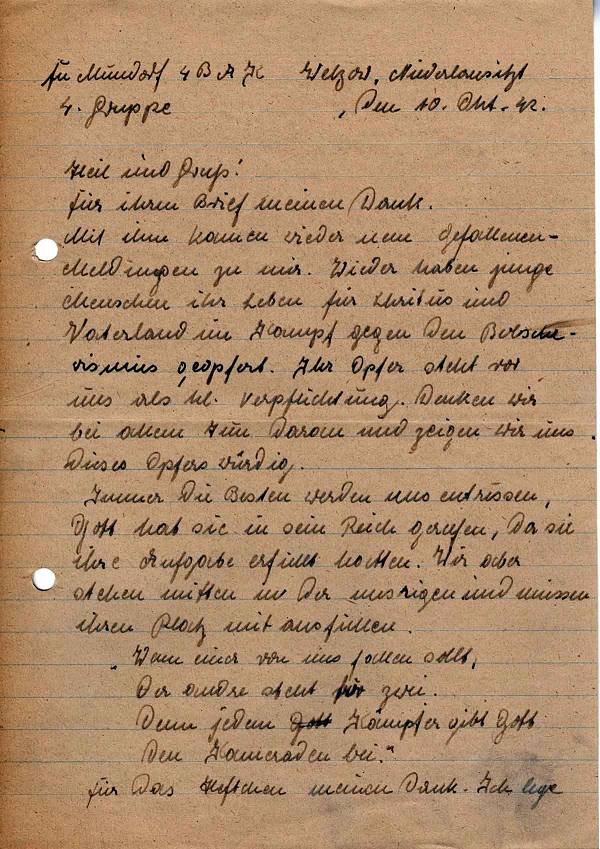 Mundorf 4 B A K Welzow, Niederlausitz
4. Gruppe , den 10. Okt. 42.
Heil und Gruß!
Für ihren Brief meinen Dank.
Mit ihm kamen wieder neue Gefallenen-
Meldungen zu mir. Wieder haben junge
Menschen ihr Leben für Christus und
Vaterland im Kampf gegen den Bolsche-
vismus geopfert. Ihr Opfer steht vor
uns als hl. Verpflichtung. Denken wir
bei allem Tun daran und zeigen wir uns
dieses Opfers würdig.
Immer die Besten werden uns entrissen,
Gott hat sie in sein Reich gerufen, da sie
ihre Aufgabe erfüllt hatten. Wir aber
stehen mitten in der unsrigen und müssen
ihren Platz mit ausfüllen.
„Wenn einer von uns fallen sollt,
Der andre steht für zwei.
Denn jedem Gott Kämpfer gibt Gott
Den Kameraden bei."
Für das Heftchen meinen Dank. Ich lege